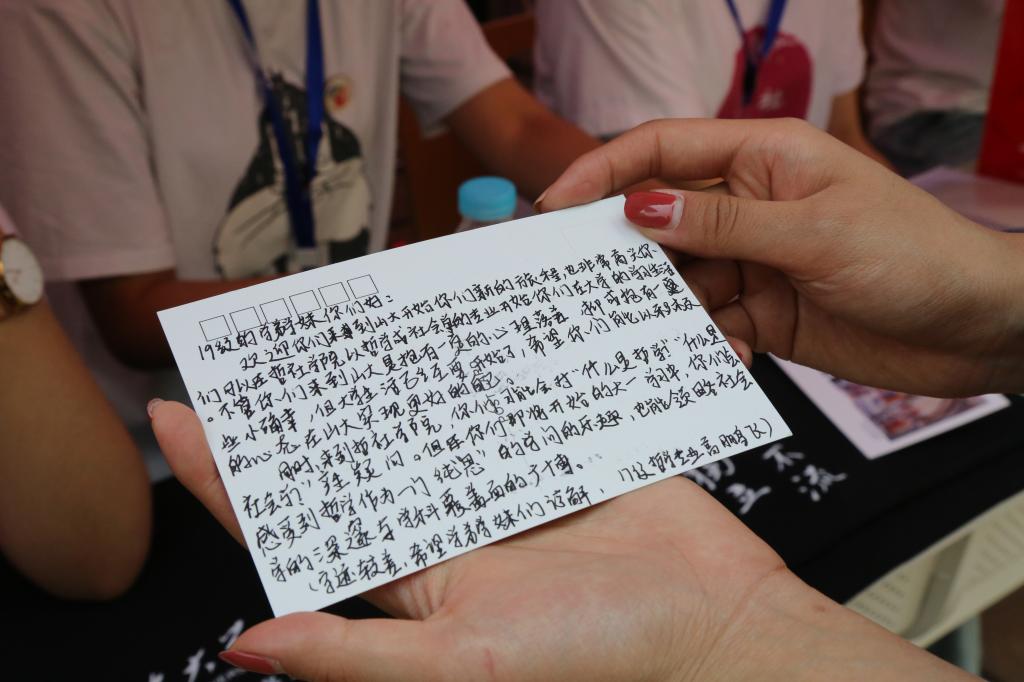 19级的学弟学妹你们好:
欢迎你们来到山大开始你们新的旅程,也非常高兴你
们可以在哲社学院以哲学或社会学的专业开始你们在大学的学习生活
。不管你们来到山大是抱有一定的心理落差,抑或抱有一些
些小确幸,但大学生活已经在开始了,希望你们能以积极
的心态在山大实现更好的
同时,来到哲社学院,你们可能会对“什么是哲学”“什么是
社会学”产生疑问。但在你们即将开始的大一
感受到哲学作为一门“纯思”的学问的乐趣,也能领略社会
学的深邃与学科最前面的
(字迹较差,希望学弟学妹们谅解
不流